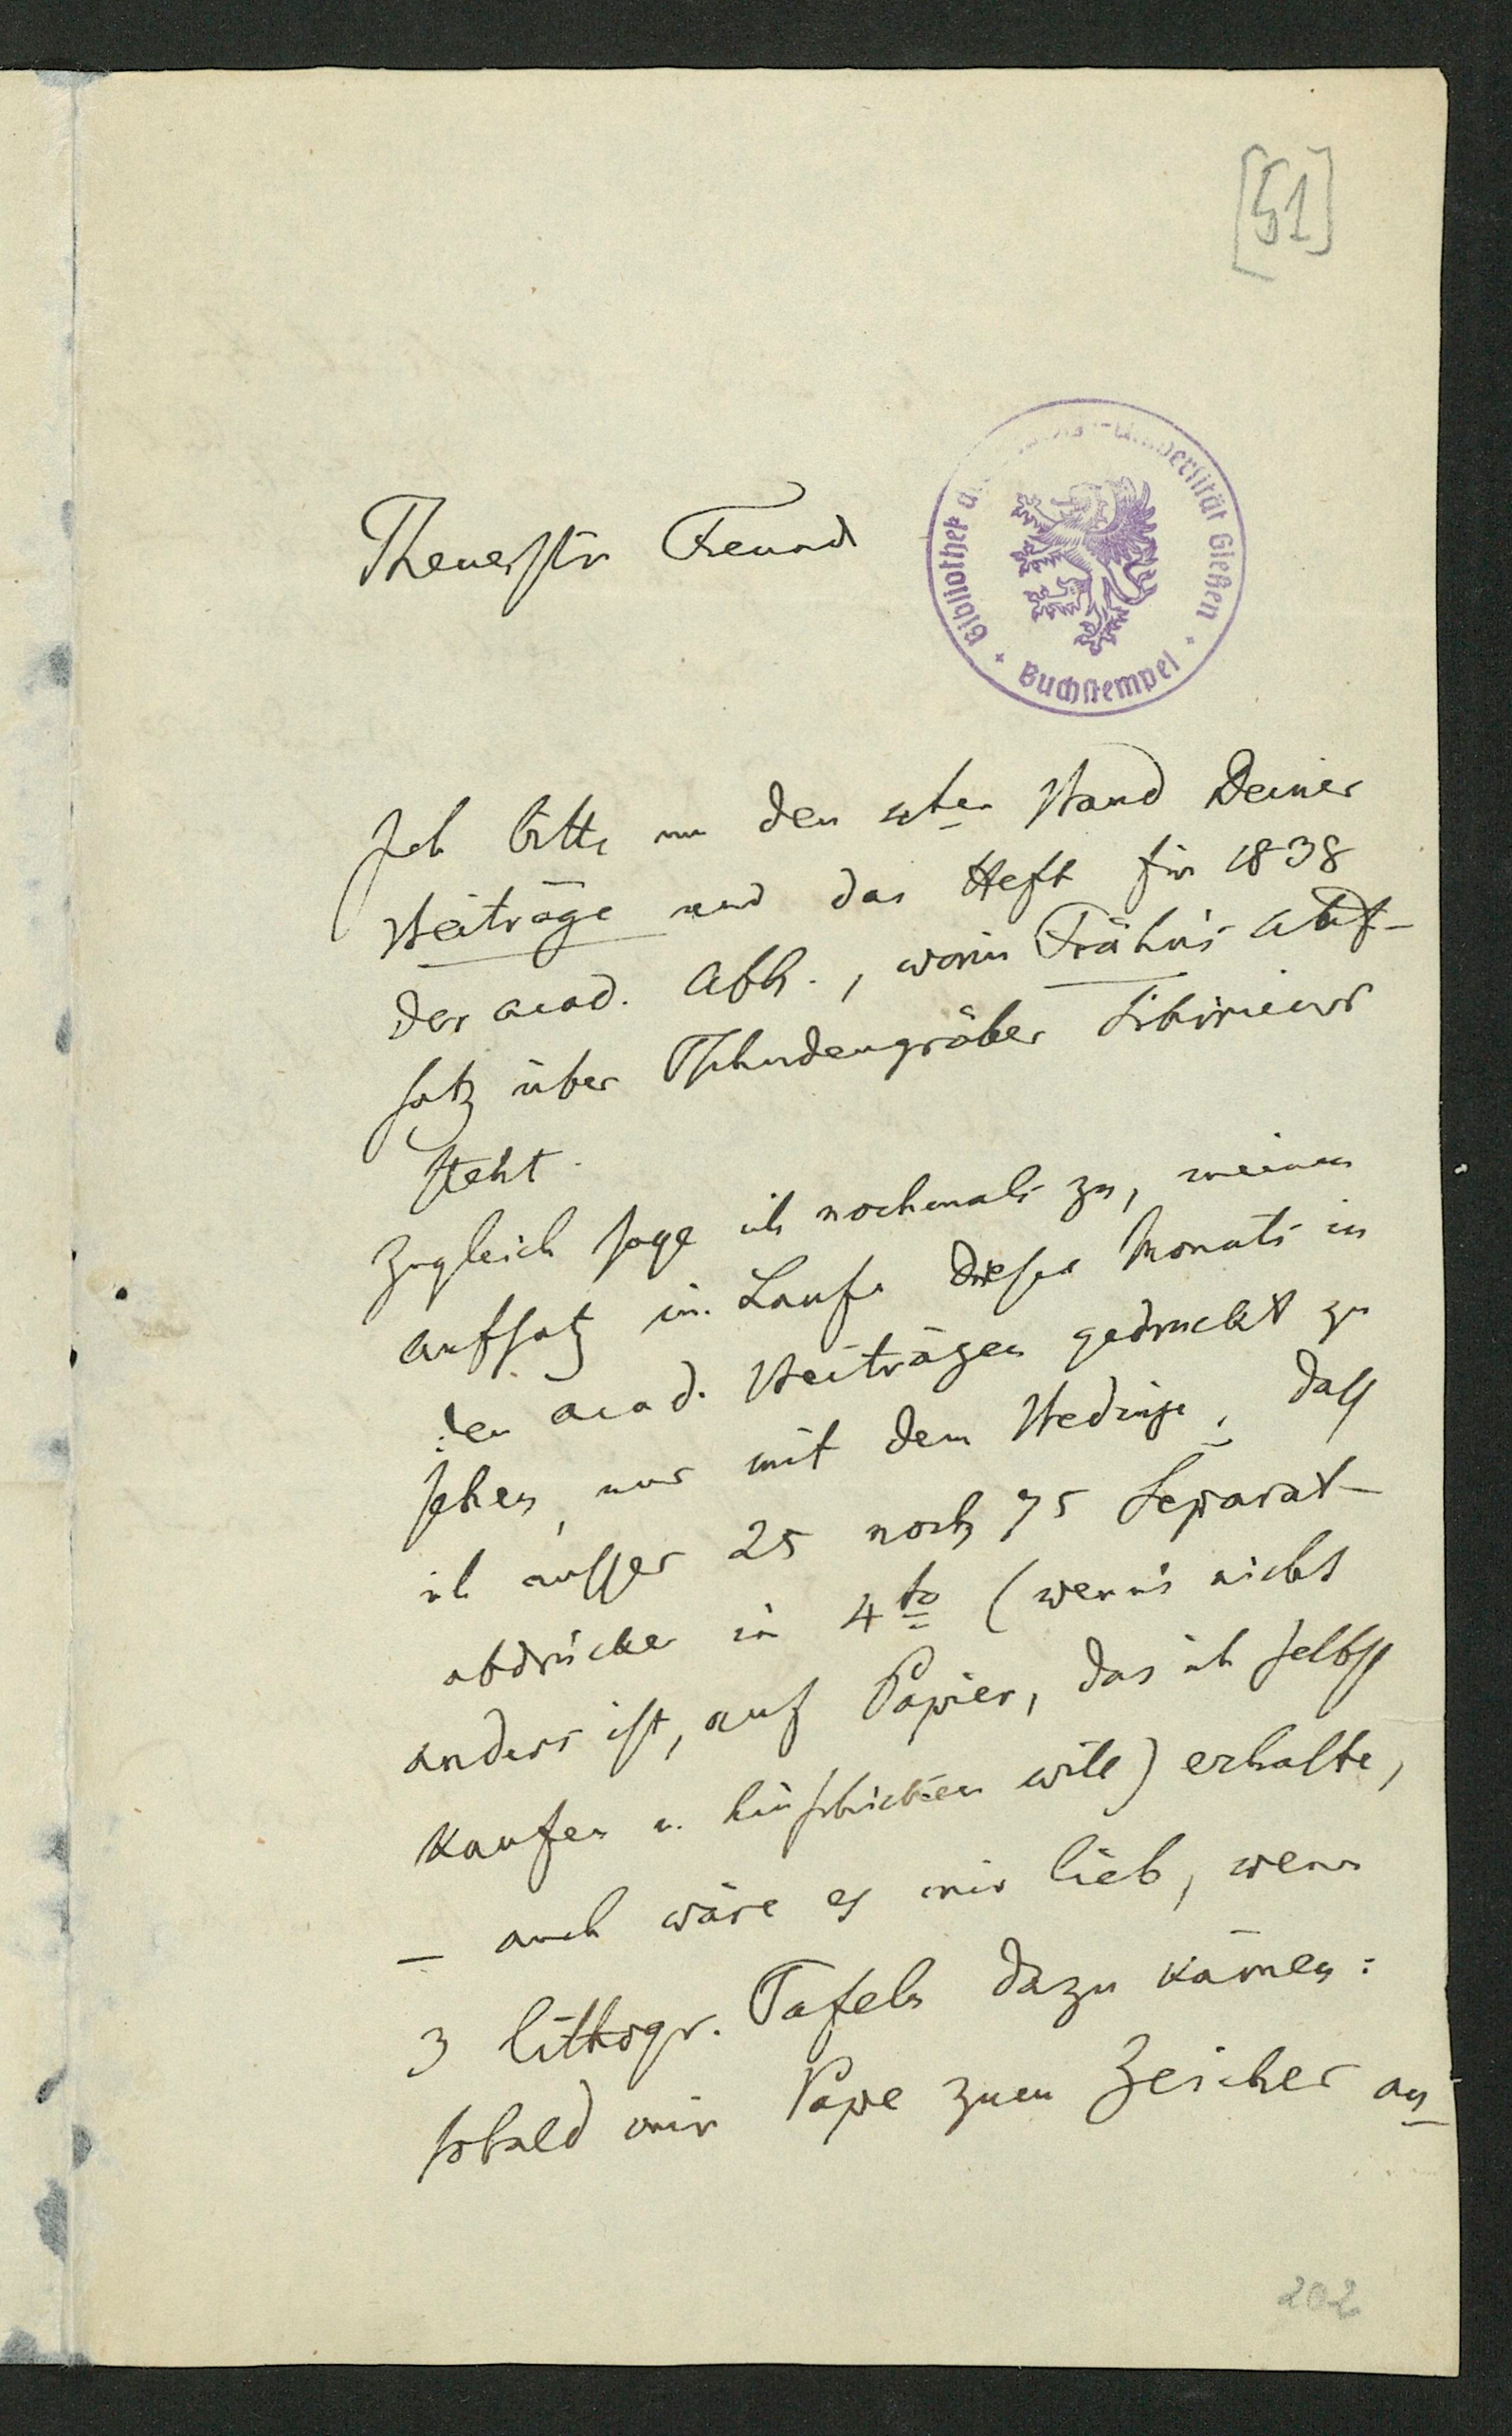 [51]
Theuerster Freund
Bibliothek Universität Gießen
Buchstempel
Ich bitte um den 4ten Band Deiner
Beiträge und das Heft für 1838
der acad. Abh., worin Frähn's Auf-
satz über Tschudengräber Sibiriens
steht.
Zugleich sage ich nochmals zu, meinen
Aufsatz im Laufe dieses Monats in
den acad. Beiträgen gedruckt zu
sehen, nur mit dem Bedinge, dass
ich ausser 25 noch 75 Separat-
abdrücke in 4to (wenn's nicht
anders ist, auf Papier, das ich selbst
kaufen u. hinschicken will) erhalte,
– auch wäre es mir lieb, wenn
3 lithogr. Tafeln dazu kämen:
sobald mir Pape zum Zeichner an-
202